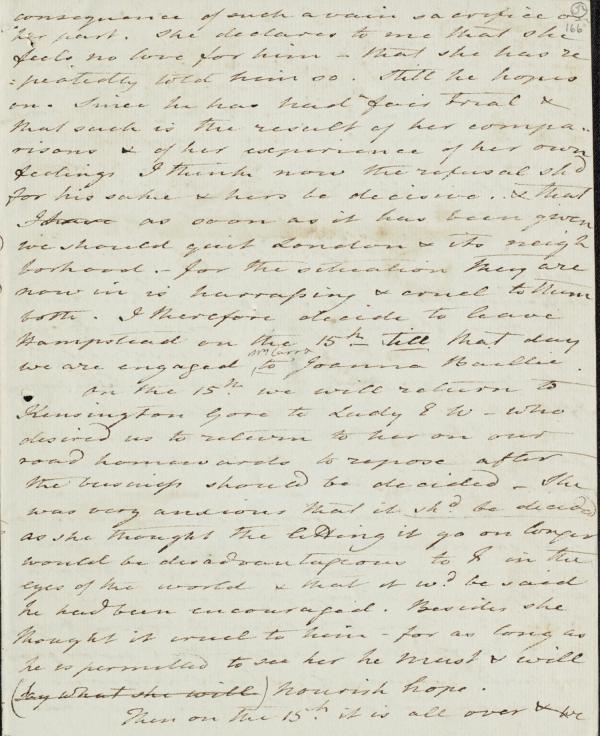 166
consequence of such a vain sacrifice on
her part. She declares to me that she
feels no love for him – that she has re
=peatedly told him so. Still he hopes
on. Since he has had fair trial &
that such is the result of her compa-
risons & of her experience of her own
feelings I think now the refusal shd
for his sake & hers be decisive. & that
I have as soon as it has been given
we should quit London & its neigh
borhood – for the situation they are
now in is harrassing & cruel to them
both. I therefore decide to leave
Hampstead on the 15th till that day
we are engaged Mrs Carr & to Joanna Baillie.
On the 15th we will return to
Kensington Gore to Lady E W – who
desired us to return to her on our
road homewards to repose after
the business should be decided – She
was very anxious that it shd be decided
as she thought the letting it go on longer
would be disadvantageous to F in the
eyes of the world & that it wd be said
he had been encouraged. Besides she
thought it cruel to him – for as long as
he is permitted to see her he must & will
(say what she will) nourish hope.
Then on the 15th it is all over & we